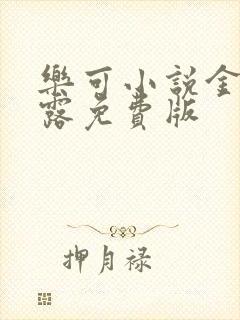 樂可小說金
露免費版
押月禄